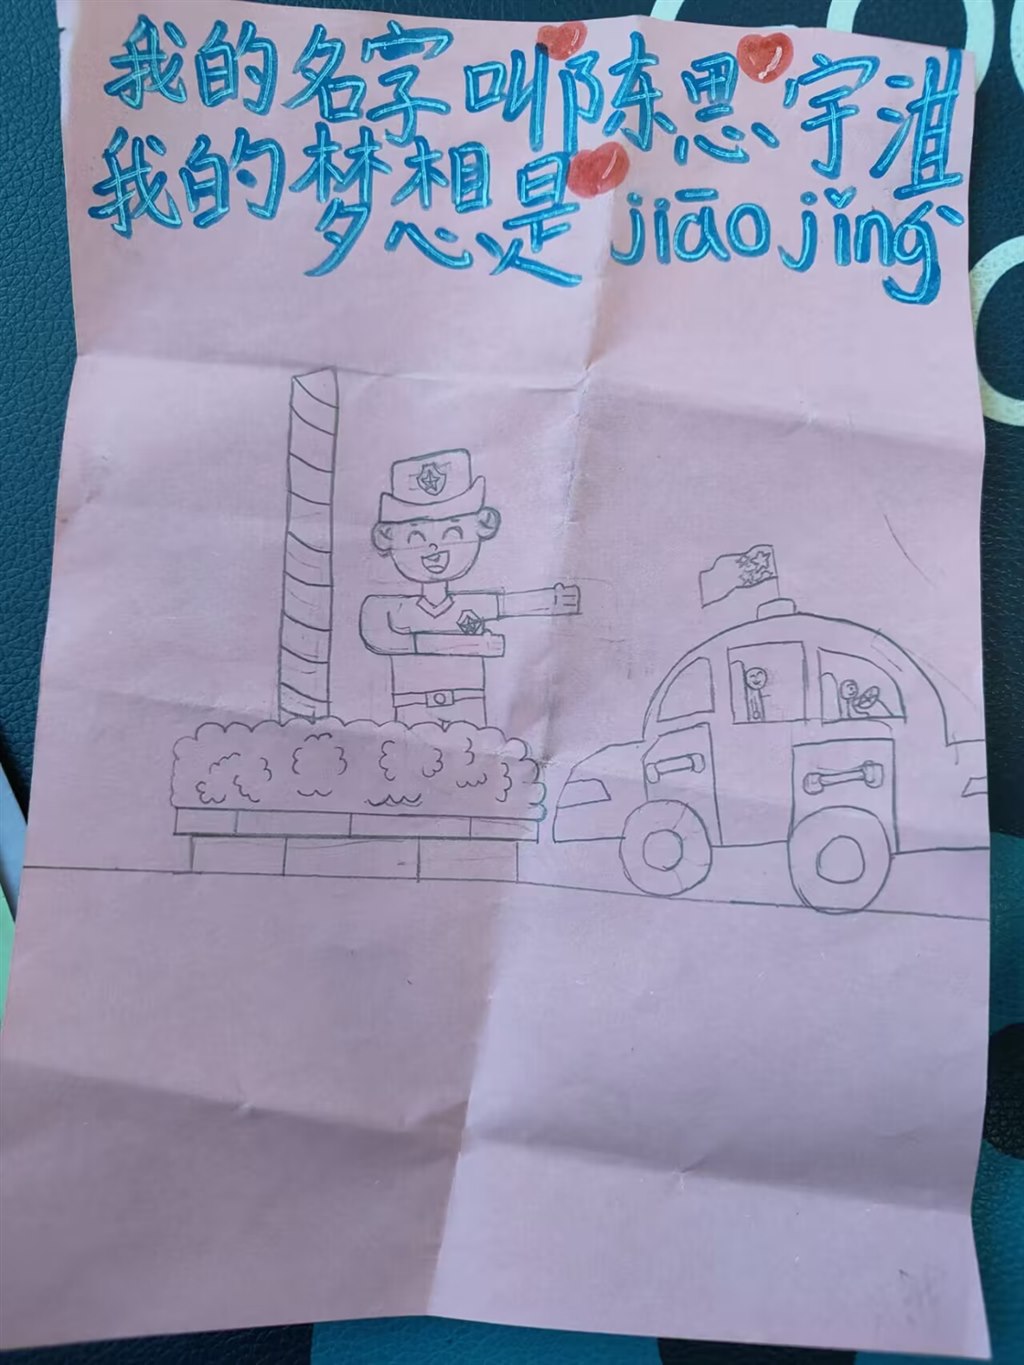 我的名字叫陈思宇湛
我的梦想是jiāojǐng